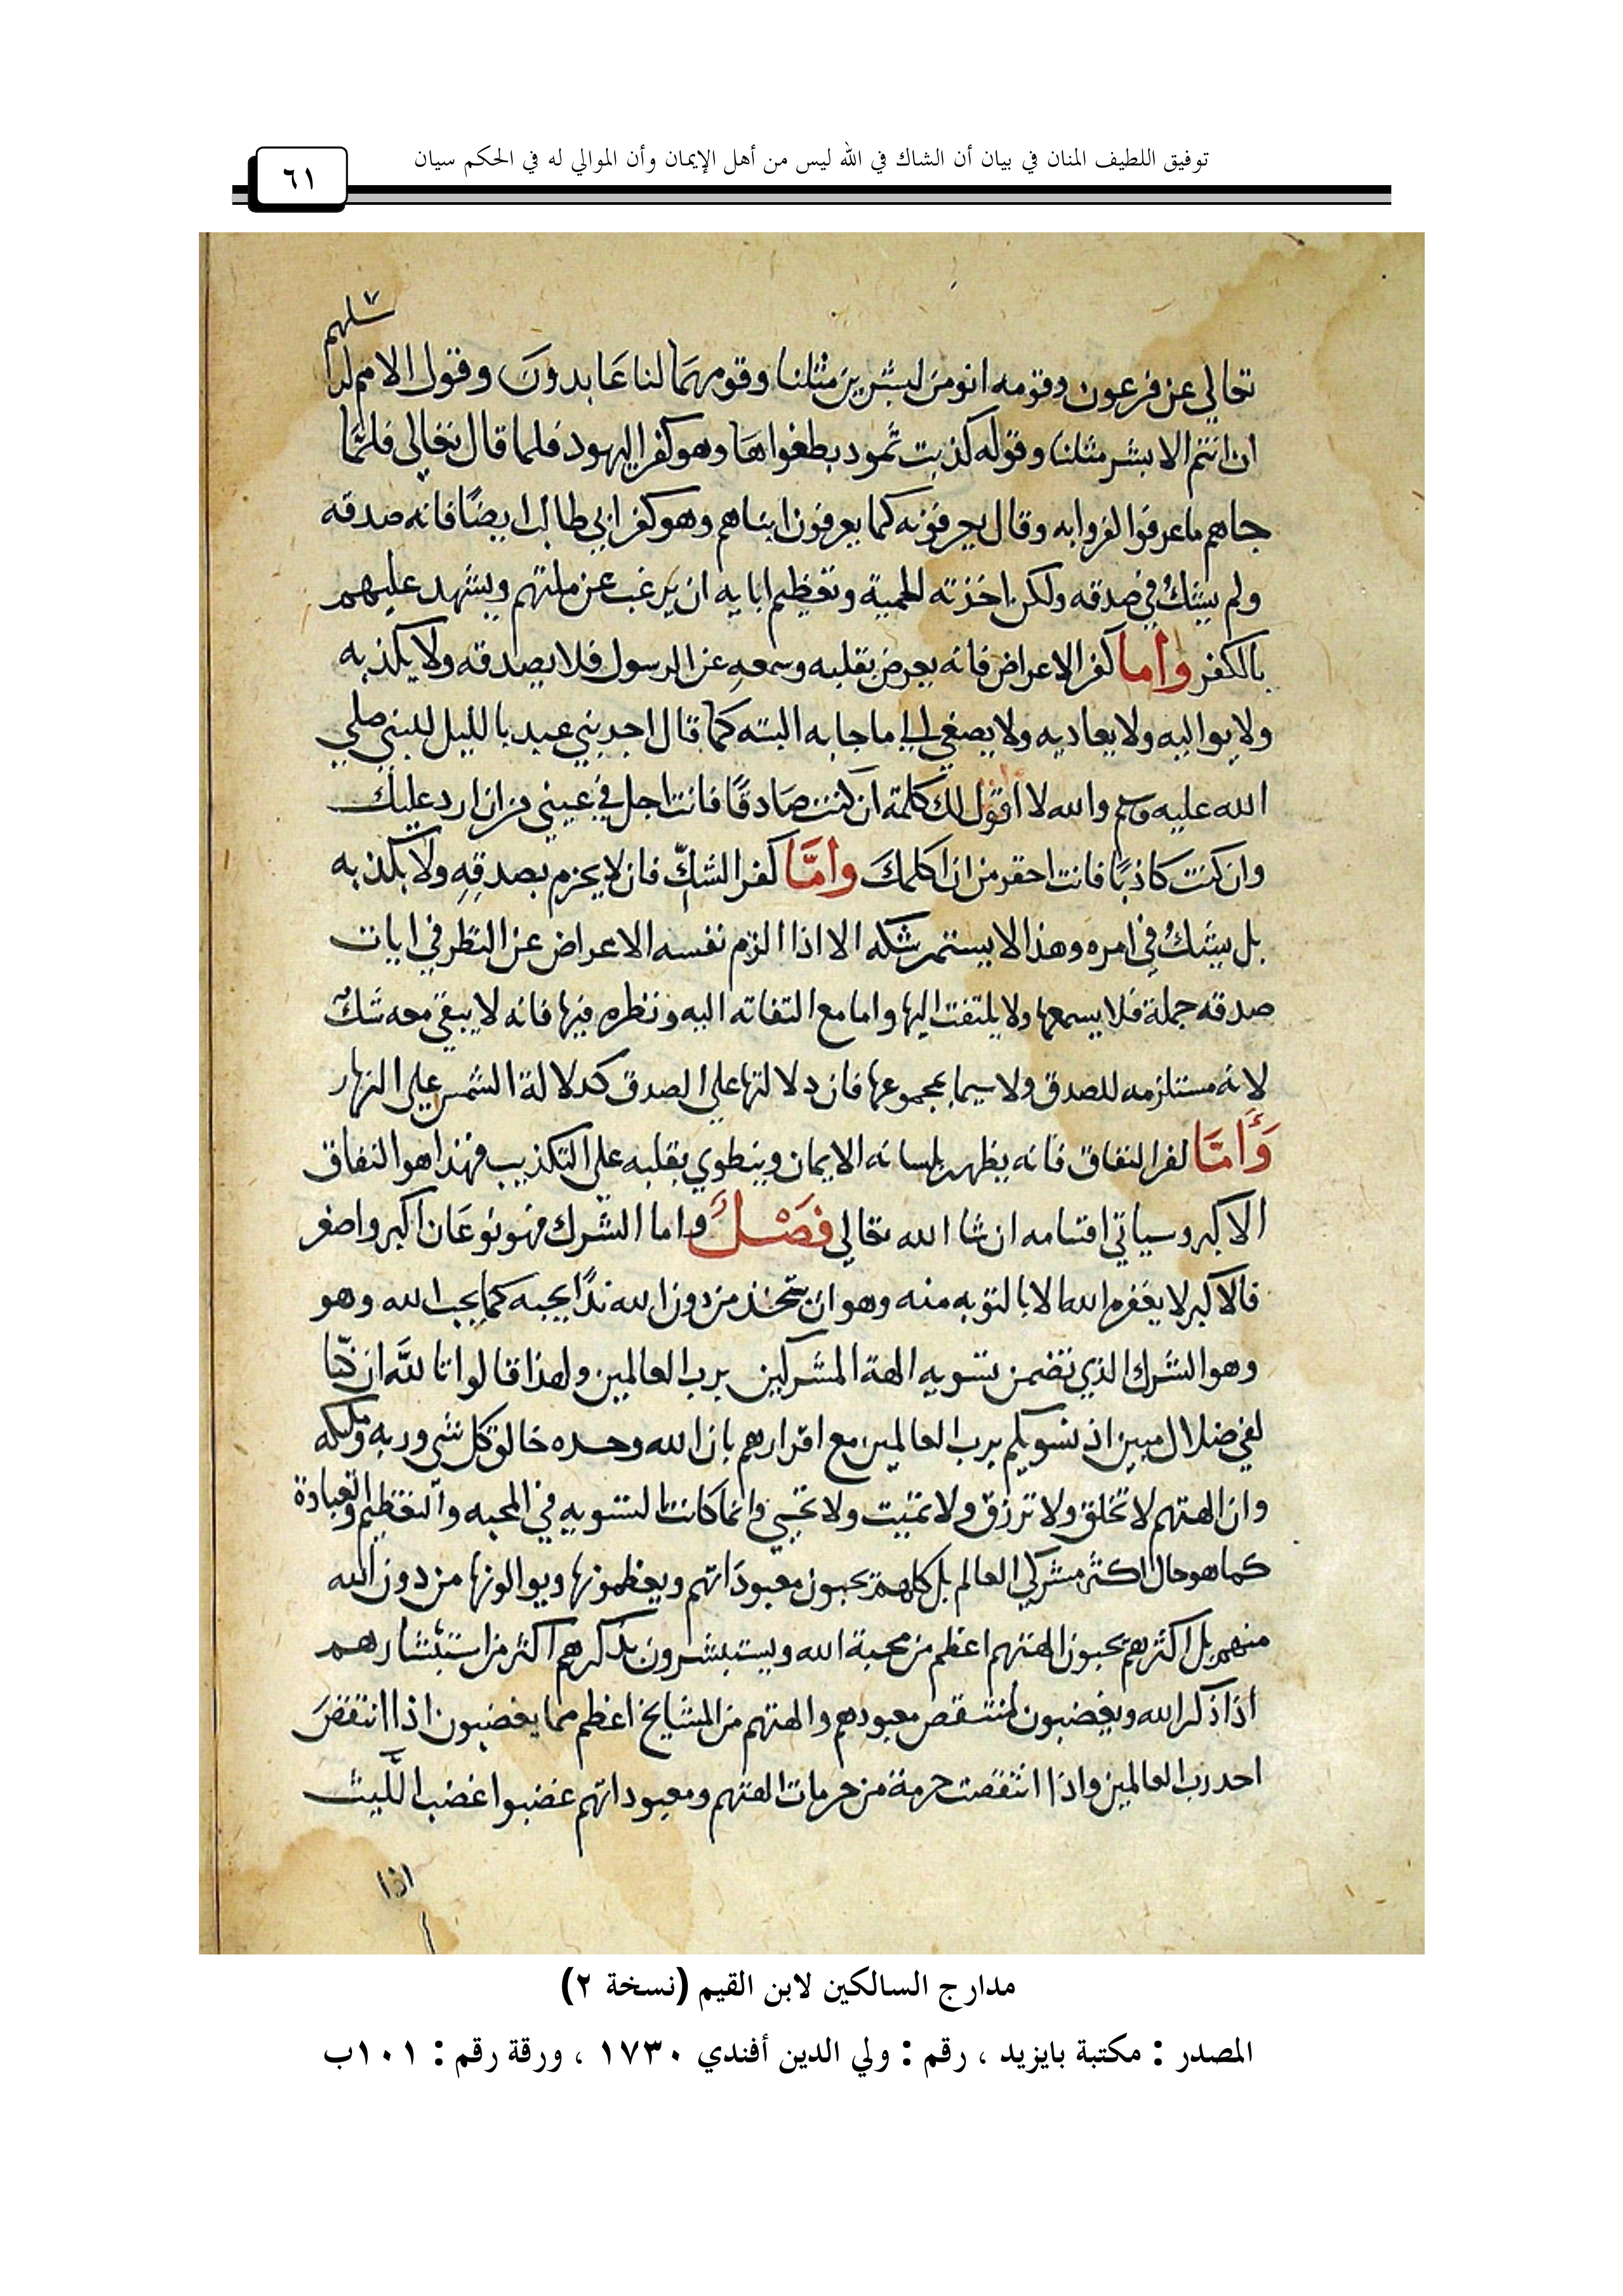 توفيق اللطيف المنان في بيان أن الشاك في الله ليس من أهل الإيمان وأن الموالي له في الحكم سيان
٦١
تعالى عن فرعون وقومه انومن لبشرين مثلنا وقومهما لنا عابدون وقول الامم لرسلهم
ان انتم الا بشر مثلنا وقوله كذبت ثمود بطغواها وهو كفر اليهود فلما قال تعالى فلمّا
جاهم ما عرفوا كفروا به وقال يعرفونه كما يعرفون ابناهم وهو كفر ابي طالب ايضًا فانه صدقه
ولم يشك في صدقه ولكن اخذته الحمية وتعظيم ابايه ان يرغب عن ملتهم ويشهد عليهم
بالكفر وأما كفر الاعراض فانه يعرض بقلبه وسمعه عن الرسول فلا يصدقه ولا يكذبه
ولا يواليه ولا يعاديه ولا يصغي الى ما جا به البته كما قال احد بني عبد ياليل للنبي صلي
الله عليه وسلم والله لا اقول لك كلمة ان كنت صادقًا فانت اجل في عيني من ان ارد عليك
وان كنت كاذبًا فانت احقر من ان اكلمك وامَّا كفر الشكّ فان لا يجزم بصدقِهِ ولا يكذبه
بل يشكُ في امره وهذا لا يستمر شكه الا اذا الزم نفسه الاعراض عن النظر في ايات
صدقه جملة فلا يسمعها ولا يلتفت اليها واما مع التفاته اليه ونظره فيها فانه لا يبقي معه شكٌ
لانه مستلزمه للصدق ولا سيما بمجموعها فان دلالتها علي الصدق كدلالة الشمس على النهار
وَأَمَّا كفر النفاق فانه يظهر بلسانه الايمان وينطوي بقلبه علي التكذيب فهذا هو النفاق
الاكبر وسياتي اقسامه ان شا الله تعالي فصْلٌ واما الشرك فهو نوعان اكبر واصغر
فالاكبر لا يغفره الله الا بالتوبه منه وهو ان يتخذ من دون الله ندًا يحبه كما يحب الله وهو
وهو الشرك الذي تضمن تسويه الهة المشركين برب العالمين ولهذا قالوا تالله ان كنّا
لفي ضلال مبين اذ نسويكم برب العالمين مع اقرارهم بان الله وحده خالق كل شي وربه ومليكه
وان الهتهم لا تخلق ولا ترزق ولا تميت ولا تحيي وانما كانت التسويه في المحبه والتعظيم والعبادة
كما هو حال اكثر مشركي العالم بل كلهم يحبون معبوداتهم ويعظمونها ويوالونها من دون الله
منهم بل اكثرهم يحبون الهتهم اعظم من محبة الله ويستبشرون بذكرهم اكثر من استبشارهم
اذا ذكر الله ويغضبون لمنتقص معبودهم والهتهم من المشايخ اعظم مما يغضبون اذا انتقص
احد رب العالمين واذا انتقصت حرمة من حرمات الهتهم ومعبوداتهم غضبوا غضب اللَّيث
اذا
مدارج السالكين لابن القيم (نسخة ٢)
المصدر : مكتبة بايزيد ، رقم : ولي الدين أفندي ١٧٣٠ ، ورقة رقم : ١٠١ب